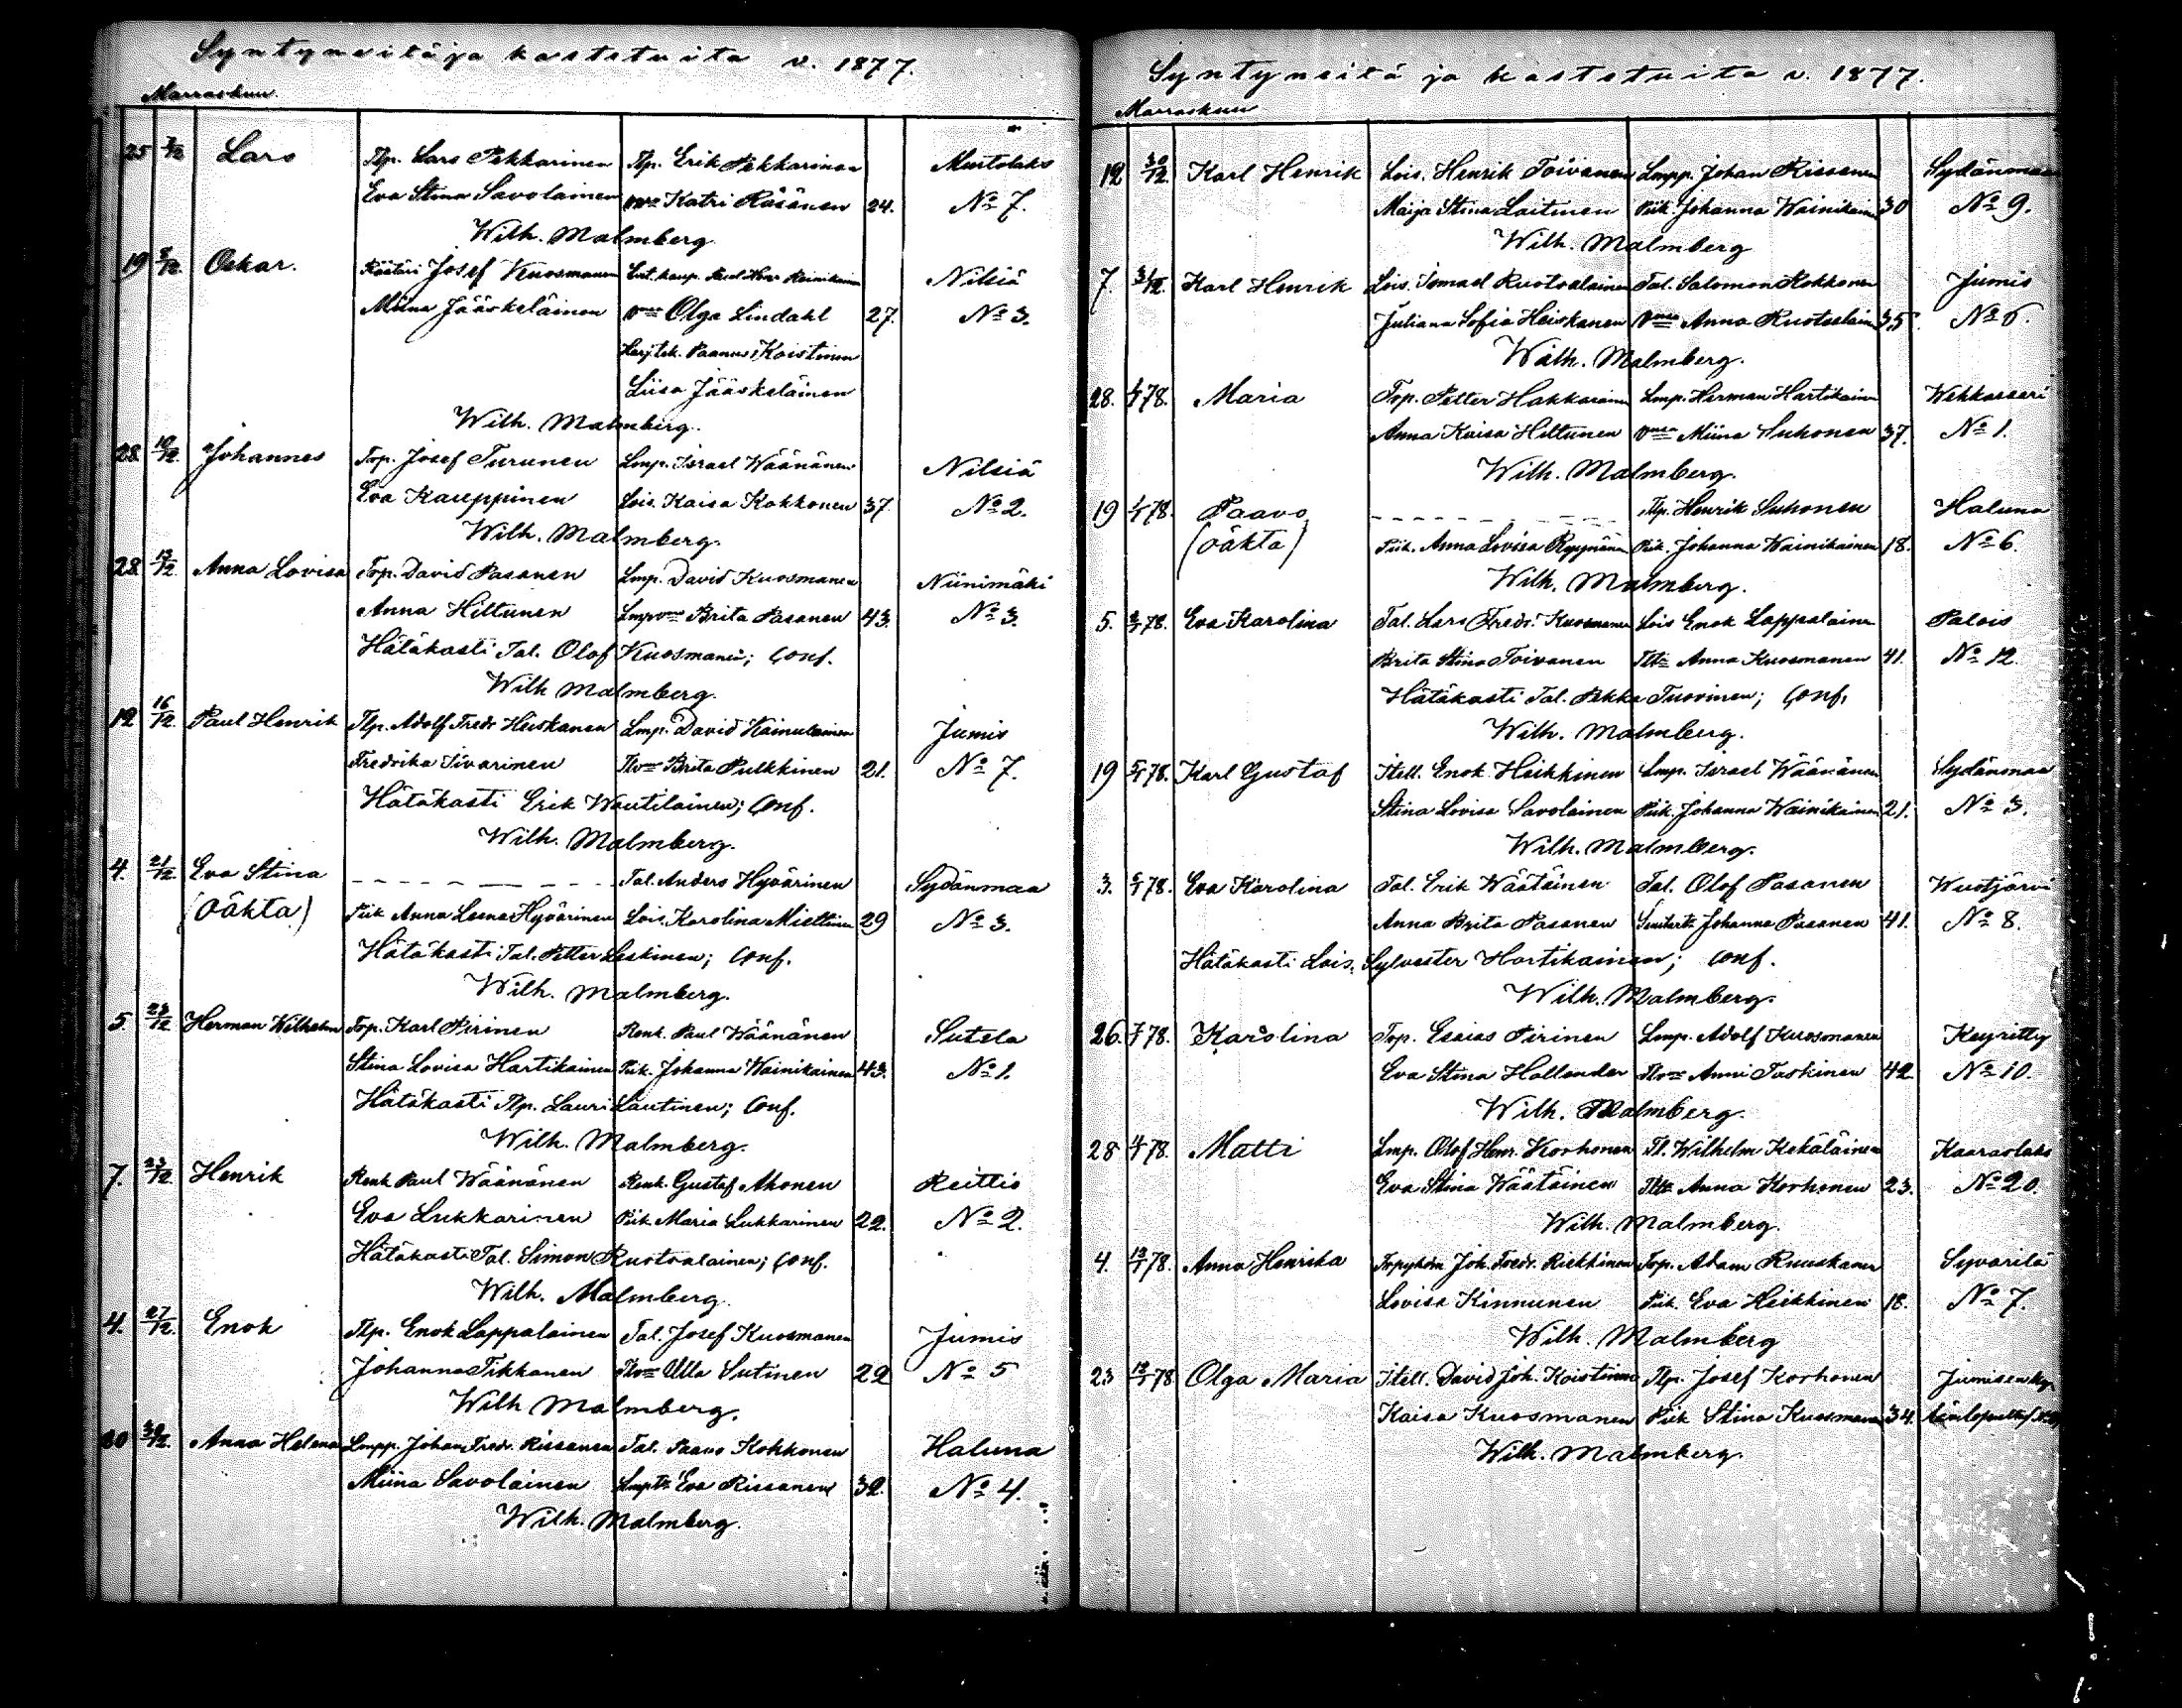 Syntyneitä ja kastetuita v. 1877.
Marraskuu
25 2/12 Lars Tlp. Lars Pekkarinen Tlp. Erik Pekkarinen Mustolaks
Eva Stina Savolainen vmo Katri Räsänen 24. No 7.
Wilh. Malmberg
19 9/12. Oskar. Räätäri Josef Kuosmanen Nilsiä
Miina Jääskeläinen vmo Olga Lindahl 27. No 3.
Koistinen
Liisa Jääskeläinen
Wilh. Malmberg.
28 10/12. Johannes Top. Josef Turunen Lmp. Israel Wäänänen Nilsiä
Eva Kauppinen Lois. Kaisa Kokkonen 37. No 2.
Wilh. Malmberg.
28 15/12. Anna Lovisa Top. David Pasanen Lmp. David Kuosmanen Niinimäki
Anna Hiltunen Lmpvmo Brita Pasanen 43. No 3.
Hätäkasti Tal. Olof Kuosmanen; Conf.
Wilh Malmberg.
12 16/12. Paul Henrik Tlp. Adolf Fredr Heiskanen Lmp. David Kainulainen Jumis
Fredrika Sivarinen Tlvmo Brita Pulkkinen 21. No 7.
Hätäkasti Erik Wautilainen; Conf.
Wilh. Malmberg.
4. 21/12. Eva Stina - - - - - - - - Tal. Anders Hyvärinen Sydänmaa
(Oäkta) Piik Anna Leena Hyvärinen Lois. Karolina Miettinen 29 No 3.
Hätäkasti Tal. Petter Leskinen; Conf.
Wilh. Malmberg.
5. 23/12 Herman Wilhelm Top. Karl Pirinen Renk. Paul Wäänänen Sutela
Stina Lovisa Hartikainen Piik. Johanna Wainikainen 43. No 1.
Hätäkasti Tlp. Lauri Lautinen; Conf.
Wilh. Malmberg.
7. 23/12 Henrik Renk Paul Wäänänen Renk. Gustaf Ahonen Reittio
Eva Lukkarinen Piik Maria Lukkarinen 22. No 2.
Hätäkasti Tal. Simon Ruotsalainen; Conf.
Wilh. Malmberg.
4. 27/12. Enok Tlp. Enok Lappalainen Tal. Josef Kuosmanen Jumis
Johanna Tikkanen Tlvmo Ulla Sutinen 22 No 5
Wilh Malmberg.
30 30/12. Anna Helena Lmpp. Johan Fredr. Rissanen Tal. Paavo Kokkonen Haluna
Miina Savolainen Lmptr Eva Rissanen 32. No 4.
Wilh. Malmberg.
Syntyneitä ja kastetuita v. 1877.
Marraskuu
12 30/12. Karl Henrik Lois. Henrik Toivanen Lmpp. Johan Rissanen Sydänmaa
Maija Stina Laitinen Piik. Johanna Wainikainen 30 No 9.
Wilh. Malmberg
7. 31/12. Karl Henrik Lois. Ismael Ruotsalainen Tal. Salomon Kokkonen Jumis
Juliana Sofia Heiskanen vmo Anna Ruotsalain 35. No 6.
Wilh. Malmberg.
28. 1/1 78. Maria Top. Petter Hakkarainen Lmp. Herman Hartikainen Wehkasseri
Anna Kaisa Hiltunen vmo Miina Suhonen 37. No 1.
Wilh. Malmberg.
19 1/1 78. Paavo - - - - - - - - Tlp. Henrik Suhonen Haluna
(Oäkta) Piik. Anna Lovisa Ryynänen Piik. Johanna Wainikainen 18. No 6.
Wilh. Malmberg.
5. 2/1 78. Eva Karolina Tal. Lars Fredr. Kuosmanen Lois Enok Lappalainen Palois
Brita Stina Toivanen Tltr Anna Kuosmanen 41. No 12.
Hätäkasti Tal. Pekka Tuovinen; Conf.
Wilh. Malmberg.
19 5/1 78. Karl Gustaf Itell. Enok Heikkinen Lmp. Israel Wäänänen Sydänmaa
Stina Lovisa Savolainen Piik. Johanna Wainikainen 21. No 3.
Wilh. Malmberg.
3. 6/1 78. Eva Karolina Tal. Erik Wäätäinen Tal. Olof Pasanen Wuotjärvi
Anna Brita Pasanen Johanna Pasanen 41. No 8.
Hätäkasti Lois. Sylvester Hartikainen; Conf.
Wilh. Malmberg.
26. 7/1 78. Karolina Top. Esaias Pirinen Lmp. Adolf Kuosmanen Keyritty
Eva Stina Hollander Tlvmo Anni Taskinen 42 No 10.
Wilh. Malmberg.
28 11/1 78. Matti Lmp. Olof Henr. Korhonen Tl. Wilhelm Kekäläinen Kaaraslaks
Eva Stina Wäätäinen Tltr Anna Korhonen 23. No 20.
Wilh. Malmberg.
4. 13/1 78. Anna Henrika Joh. Fredr. Riekkinen Top. Adam Ruuskanen Syvärilä
Lovisa Kinnunen Piik. Eva Heikkinen 18. No 7.
Wilh. Malmberg
23 13/1 78 Olga Maria Itell. David Joh. Koistinen Tlp. Josef Korhonen Jumisenkyl.
Kaisa Kuosmanen Piik Stina Kuosmanen 34.
Wilh. Malmberg.